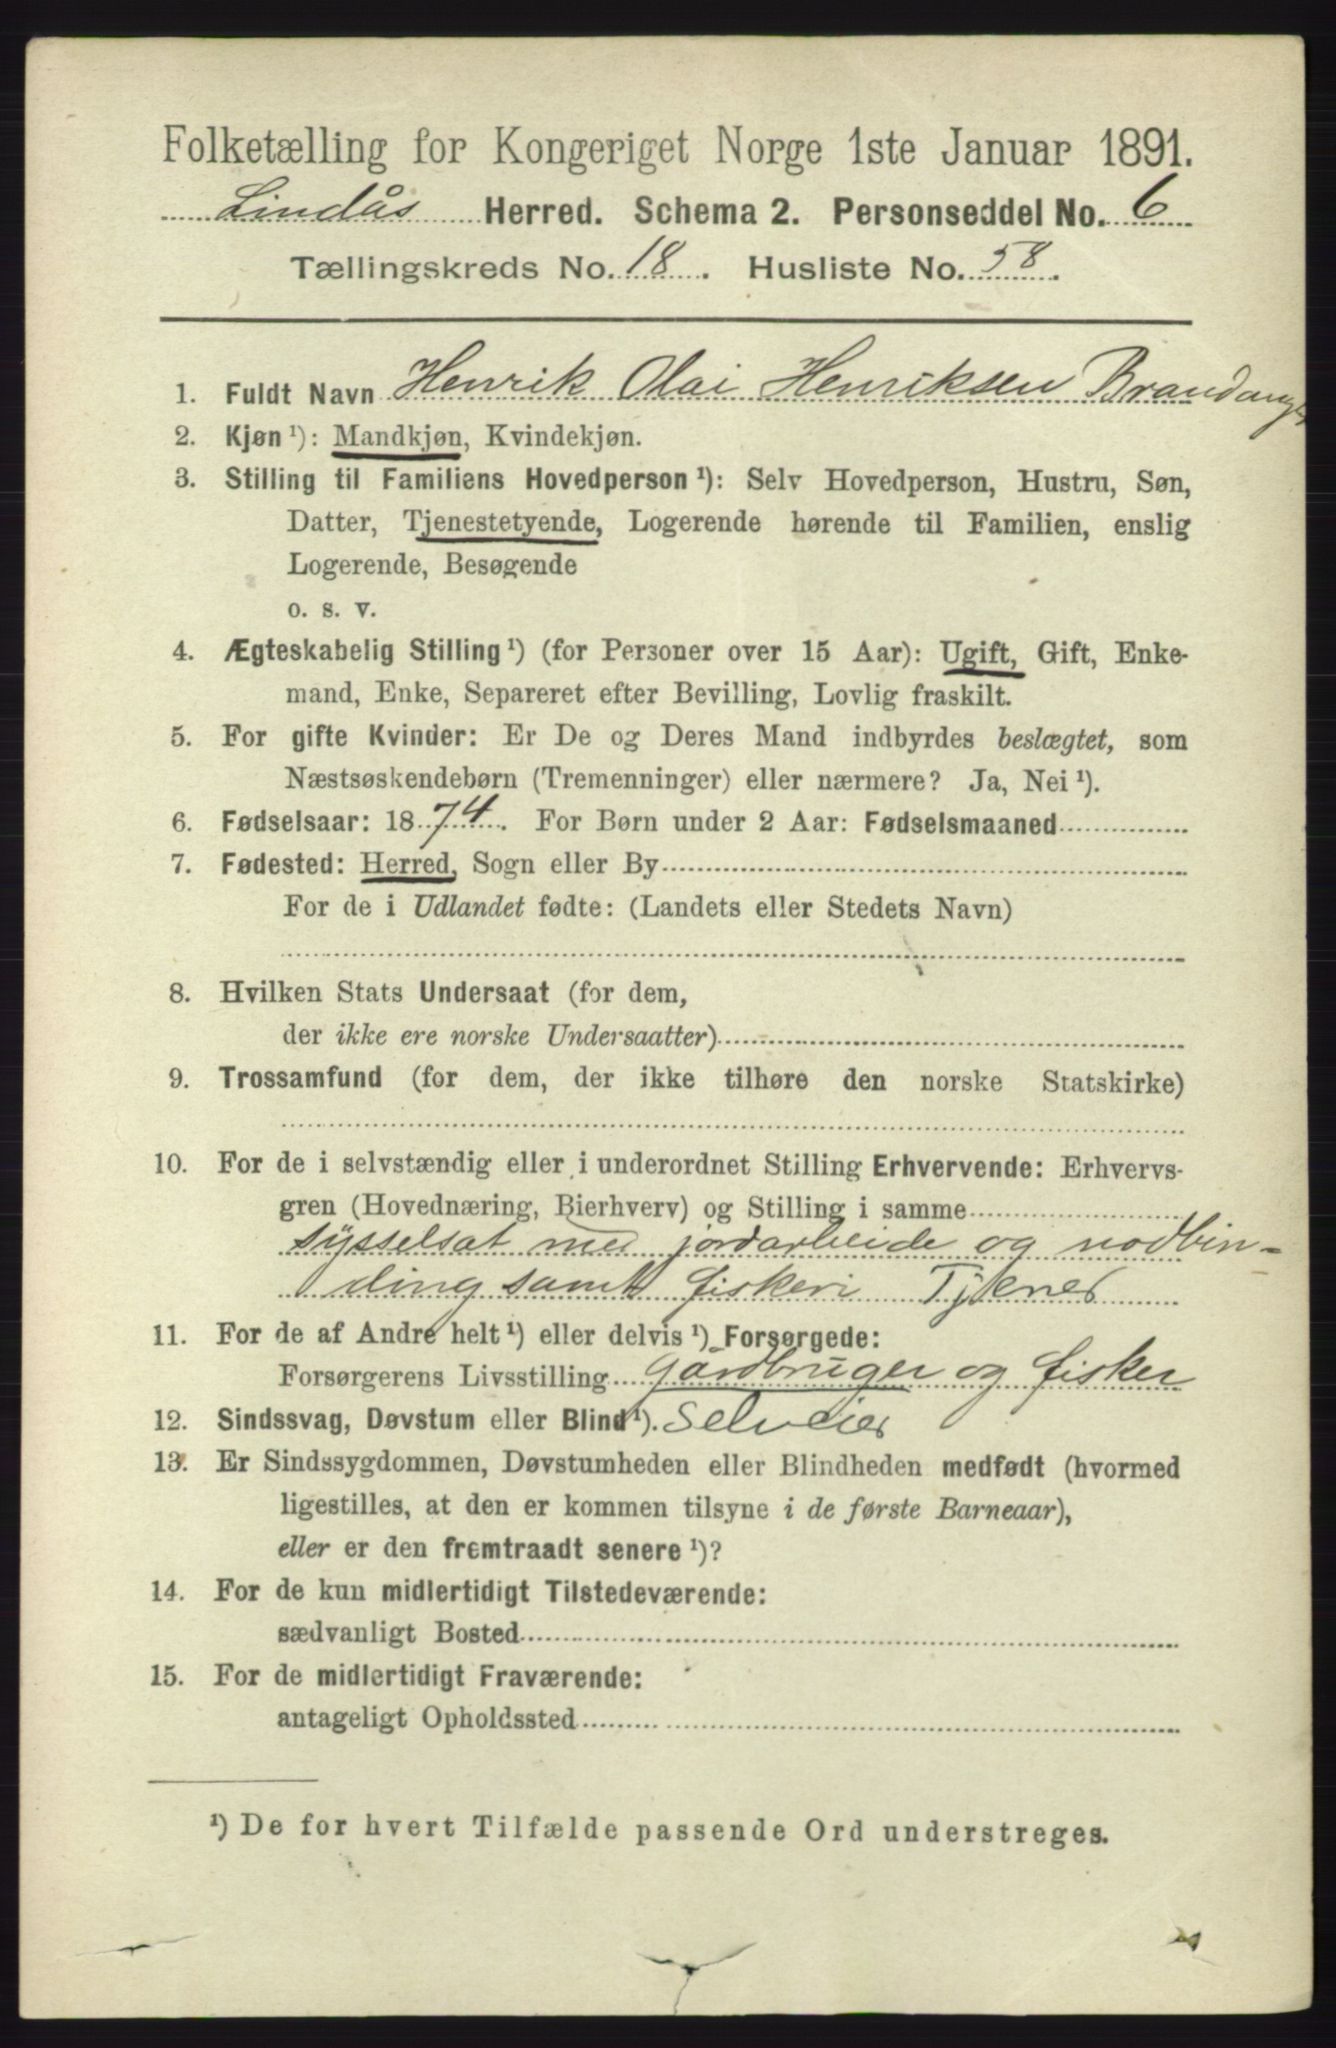 Folketælling for Kongeriget Norge 1ste Januar 1891.
Lindås Herred. Schema 2. Personseddel No. 6
Tællingskreds No. 18. Husliste No. 58.
1. Fuldt Navn Henrik Olai Henriksen
2. Kjøn ¹): Mandkjøn, Kvindekjøn.
3. Stilling til Familiens Hovedperson ¹): Selv Hovedperson, Hustru, Søn,
Datter, Tjenestetyende, Logerende hørende til Familien, enslig
Logerende, Besøgende
o. s. v.
4. Ægteskabelig Stilling ¹) (for Personer over 15 Aar): Ugift, Gift, Enke-
mand, Enke, Separeret efter Bevilling, Lovlig fraskilt.
5. For gifte Kvinder: Er De og Deres Mand indbyrdes beslægtet, som
Næstsøskendebørn (Tremenninger) eller nærmere? Ja, Nei ¹).
6. Fødselsaar: 1874. For Børn under 2 Aar: Fødselsmaaned
7. Fødested: Herred, Sogn eller By
For de i Udlandet fødte: (Landets eller Stedets Navn)
8. Hvilken Stats Undersaat (for dem,
der ikke ere norske Undersaatter)
9. Trossamfund (for dem, der ikke tilhøre den norske Statskirke)
10. For de i selvstændig eller i underordnet Stilling Erhvervende: Erhvervs-
gren (Hovednæring, Bierhverv) og Stilling i samme
sysselsat med jordarbeide og nodbin-
ding samt fiskeri Tjener
11. For de af Andre helt ¹) eller delvis ¹) Forsørgede:
Forsørgerens Livsstilling gardbruger og fisker
12. Sindssvag, Døvstum eller Blind ¹). Selveier
13. Er Sindssygdommen, Døvstumheden eller Blindheden medfødt (hvormed
ligestilles, at den er kommen tilsyne i de første Barneaar),
eller er den fremtraadt senere ¹)?
14. For de kun midlertidigt Tilstedeværende:
sædvanligt Bosted
15. For de midlertidigt Fraværende:
antageligt Opholdssted
¹) De for hvert Tilfælde passende Ord understreges.